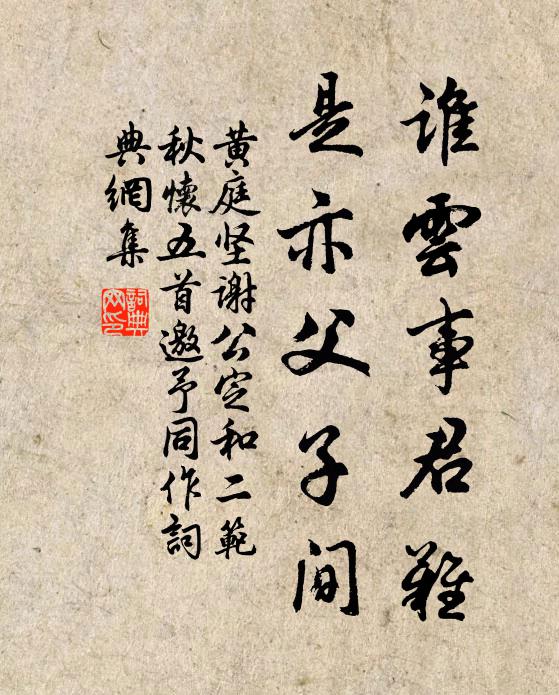 誰雲事君難
是亦父子間
黄庭坚謝公定和二範
秋懷五首邀予同作詞
典網集
詞典
网印